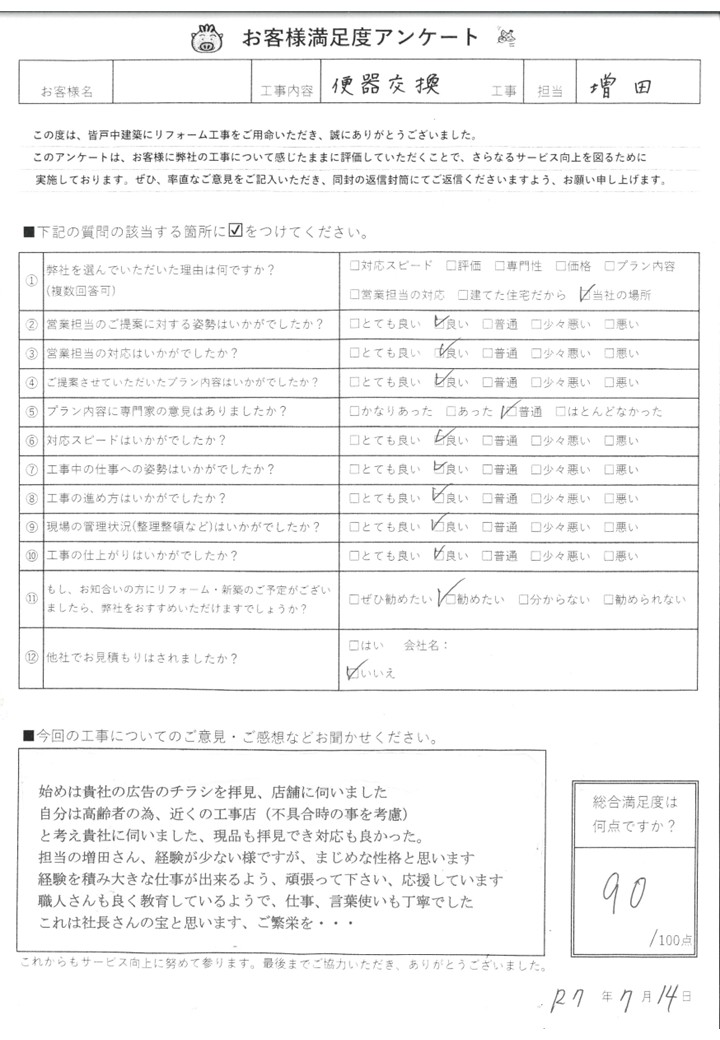 お客様満足度アンケート
お客様名 工事内容 便器交換 工事 担当 増田
この度は、皆戸中建築にリフォーム工事をご用命いただき、誠にありがとうございました。
このアンケートは、お客様に弊社の工事について感じたままに評価していただくことで、さらなるサービス向上を図るために
実施しております。ぜひ、率直なご意見をご記入いただき、同封の返信封筒にてご返信くださいますよう、お願い申し上げます。
■下記の質問の該当する箇所に☑をつけてください。
① 弊社を選んでいただいた理由は何ですか？
(複数回答可)
□対応スピード □評価 □専門性 □価格 □プラン内容
□営業担当の対応 □建てた住宅だから ☑当社の場所
② 営業担当のご提案に対する姿勢はいかがでしたか？ □とても良い ☑良い □普通 □少々悪い □悪い
③ 営業担当の対応はいかがでしたか？ □とても良い ☑良い □普通 □少々悪い □悪い
④ ご提案させていただいたプラン内容はいかがでしたか？ □とても良い ☑良い □普通 □少々悪い □悪い
⑤ プラン内容に専門家の意見はありましたか？ □かなりあった □あった ☑普通 □ほとんどなかった
⑥ 対応スピードはいかがでしたか？ □とても良い ☑良い □普通 □少々悪い □悪い
⑦ 工事中の仕事への姿勢はいかがでしたか？ □とても良い ☑良い □普通 □少々悪い □悪い
⑧ 工事の進め方はいかがでしたか？ □とても良い ☑良い □普通 □少々悪い □悪い
⑨ 現場の管理状況(整理整頓など)はいかがでしたか？ □とても良い ☑良い □普通 □少々悪い □悪い
⑩ 工事の仕上がりはいかがでしたか？ □とても良い ☑良い □普通 □少々悪い □悪い
⑪ もし、お知合いの方にリフォーム・新築のご予定がござい
ましたら、弊社をおすすめいただけますでしょうか？
□ぜひ勧めたい ☑勧めたい □分からない □勧められない
⑫ 他社でお見積もりはされましたか？
□はい 会社名：
☑いいえ
■今回の工事についてのご意見・ご感想などお聞かせください。
始めは貴社の広告のチラシを拝見、店舗に伺いました
自分は高齢者の為、近くの工事店（不具合時の事を考慮）
と考え貴社に伺いました、現品も拝見でき対応も良かった。
担当の増田さん、経験が少ない様ですが、まじめな性格と思います
経験を積み大きな仕事が出来るよう、頑張って下さい、応援しています
職人さんも良く教育しているようで、仕事、言葉使いも丁寧でした
これは社長さんの宝と思います、ご繁栄を・・・
総合満足度は
何点ですか？
90
/100点
これからもサービス向上に努めて参ります。最後までご協力いただき、ありがとうございました。
R7年7月14日